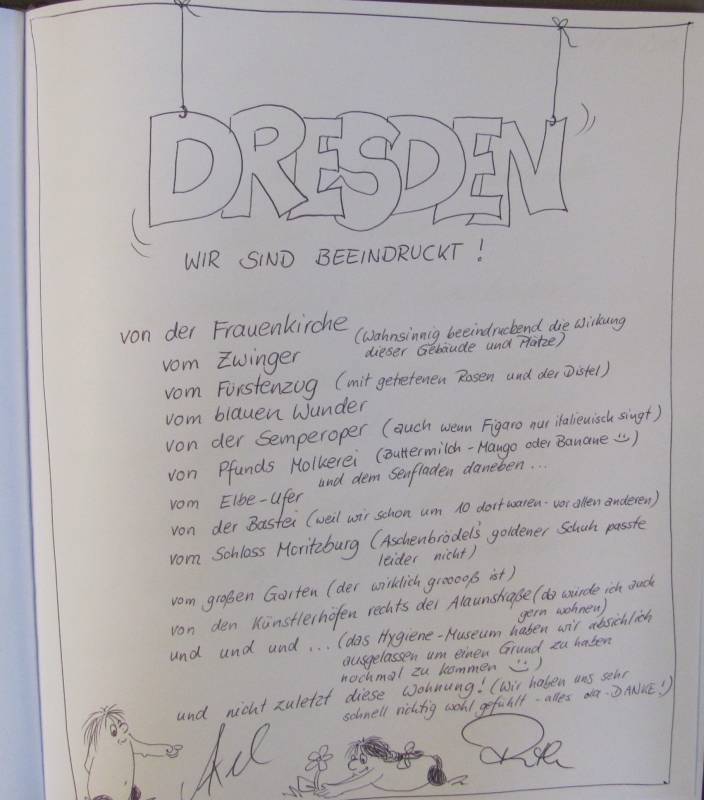 DRESDEN
WIR SIND BEEINDRUCKT!
von der Frauenkirche (Wahnsinnig beeindruckend die Wirkung
dieser Gebäude und Plätze)
vom Zwinger
vom Fürstenzug (mit getretenen Rosen und der Distel)
vom blauen Wunder
von der Semperoper (auch wenn Figaro nur italienisch singt)
von Pfunds Molkerei (Buttermilch-Mango oder Banane)
und dem Senfladen daneben...
vom Elbe-Ufer
von der Bastei (weil wir schon um 10 dort waren - vor allen anderen)
vom Schloss Moritzburg (Aschenbrödel's goldener Schuh passte
leider nicht)
vom großen Garten (der wirklich groooß ist)
von den Künstlerhöfen rechts der Alaunstraße (da würde ich auch
gern wohnen)
und und und ... (das Hygiene-Museum haben wir absichlich
ausgelassen um einen Grund zu haben
nochmal zu kommen)
und nicht zuletzt diese Wohnung! (Wir haben uns sehr
schnell richtig wohl gefühlt - alles da - DANKE!)